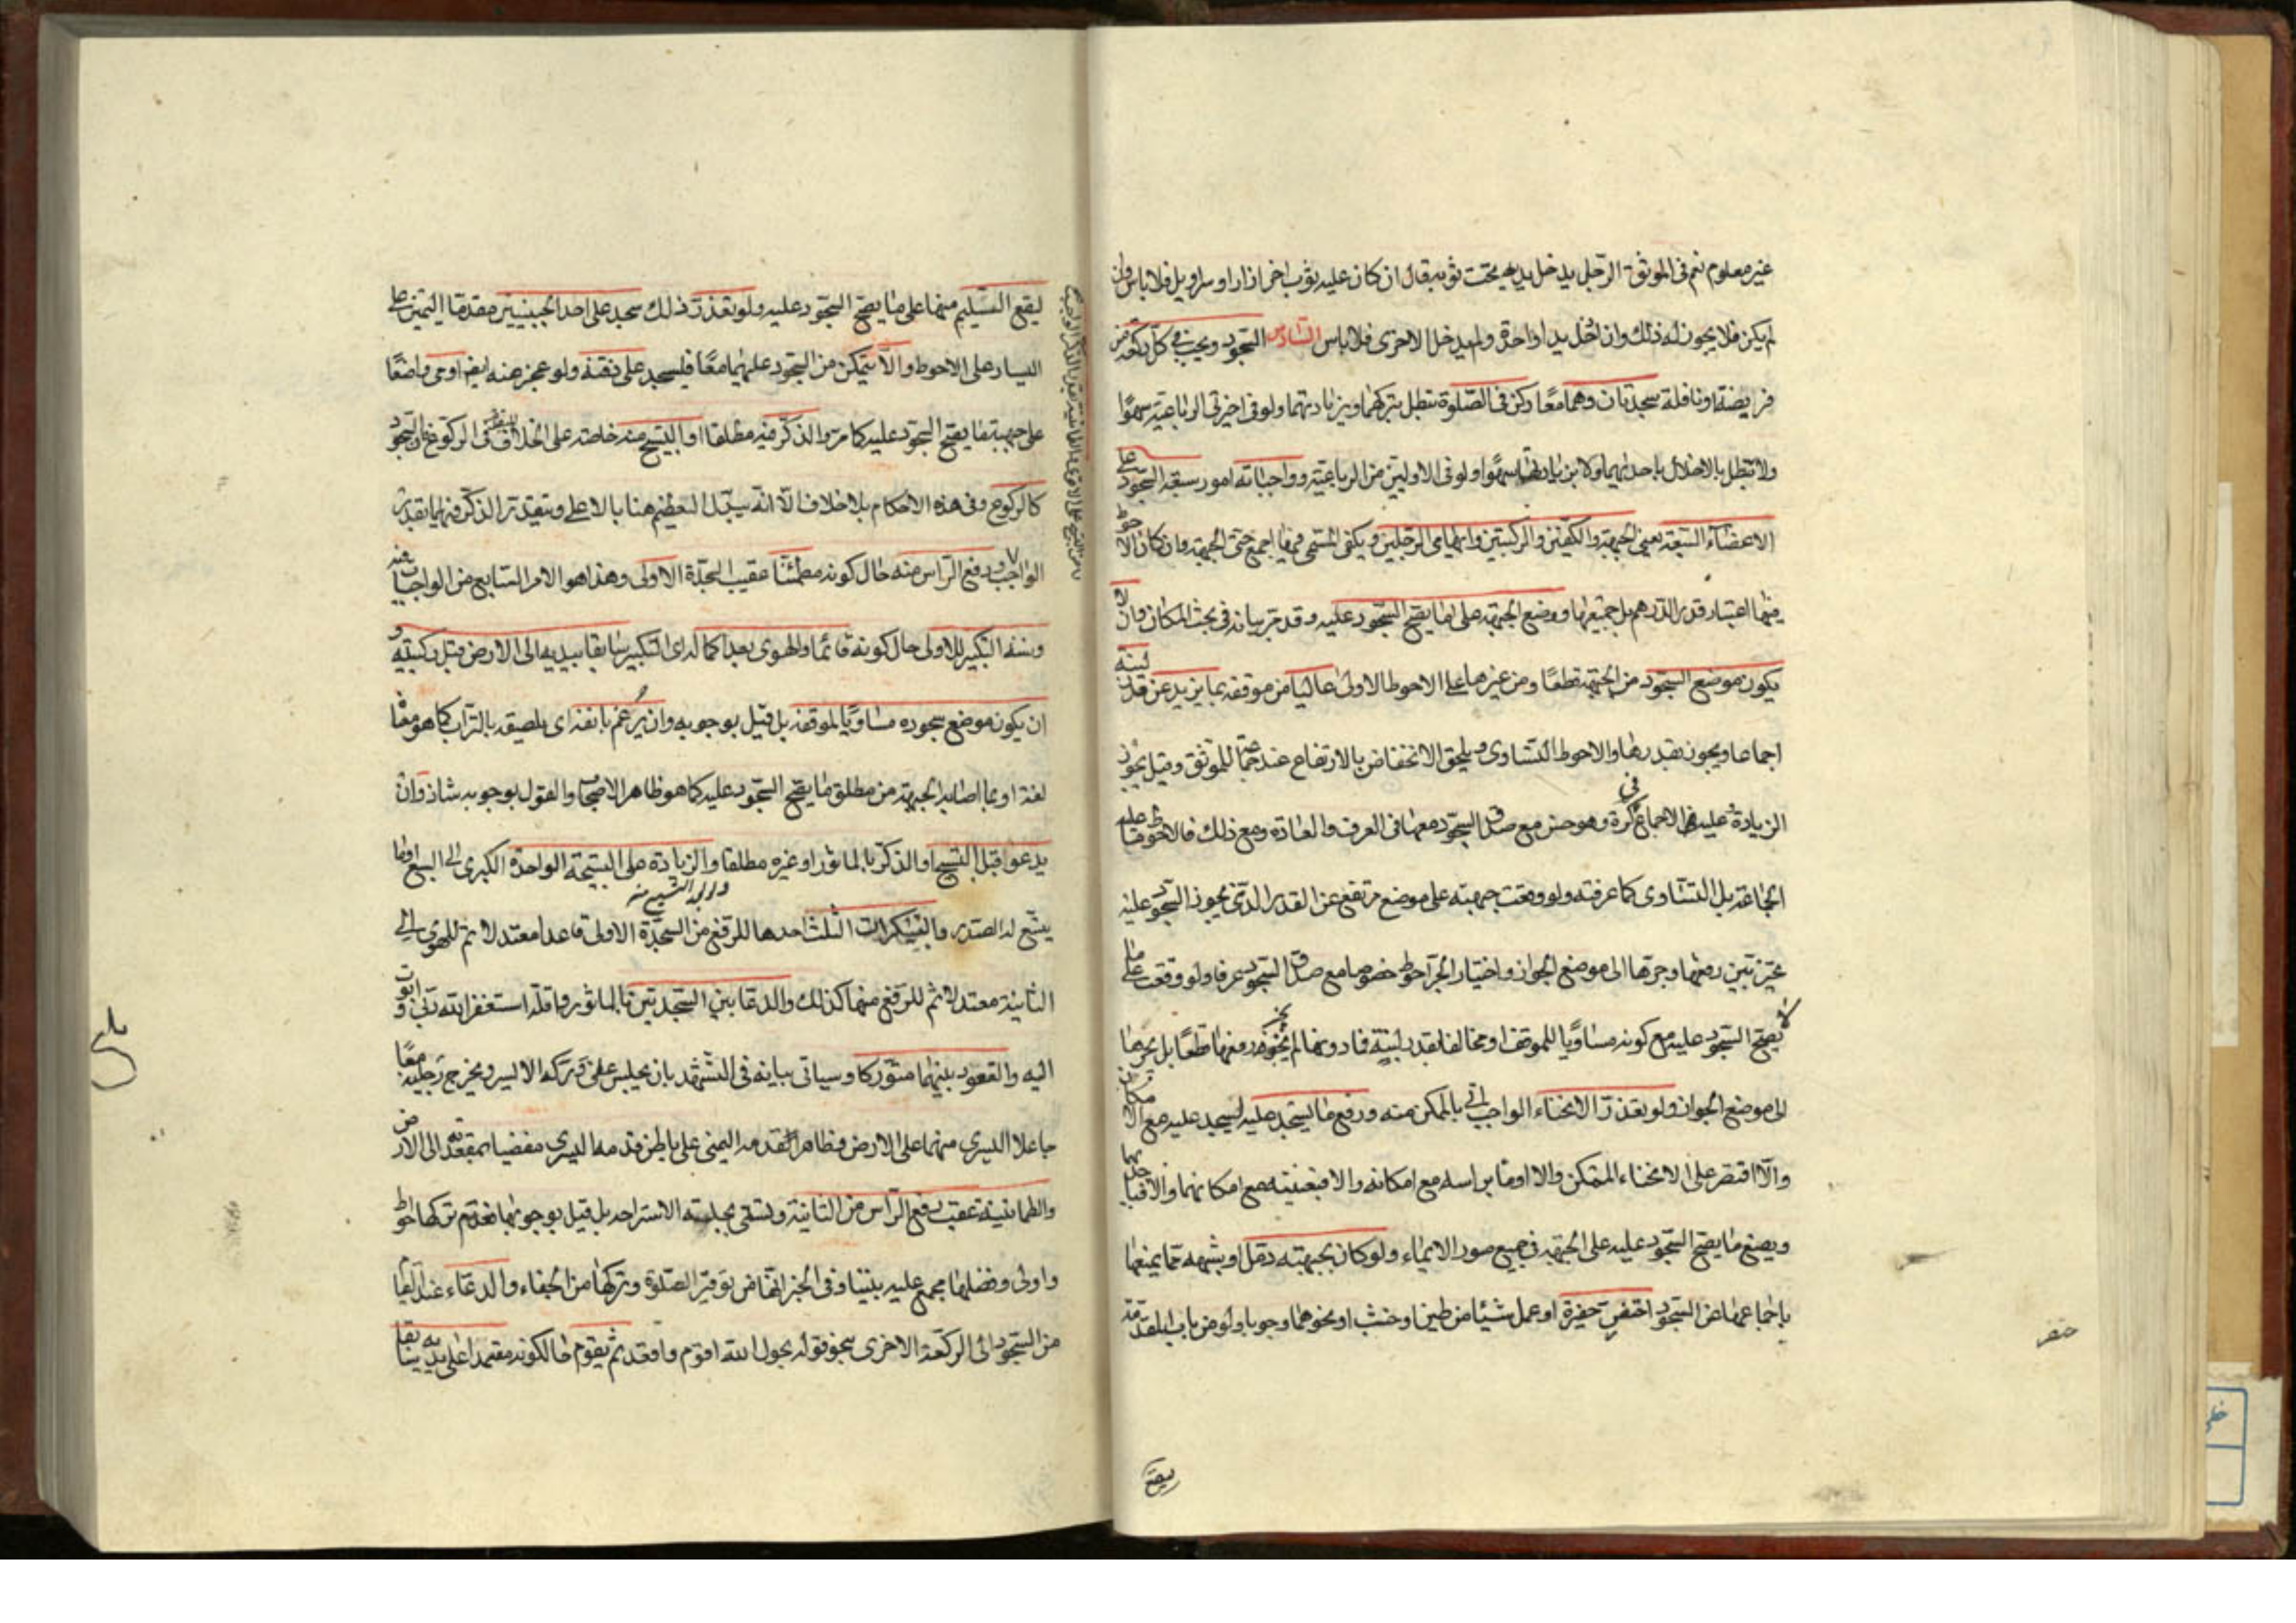 غير معلوم نعم فى الموثق الرجل يدخل يديه تحت ثوبه قال ان كان عليه ثوب اخر ازار او سراويل فلا باس وان
لم يكن فلا يجوز له ذلك وان ادخل يدا واحدة ولم يدخل الاخرى فلا باس السادس السجود ويجب فى كل ركعة من
فريضة او نافلة سجدتان وهما معا ركن فى الصلوة تبطل بتركهما وبزيادتهما ولو فى اخيرتى الرباعية سهوا
ولا تبطل بالاخلال باحديهما ولا بزيادتها سهوا ولو فى الاوليين من الرباعية وواجباته امور سبعة السجود على
الاعضاء السبعة يعنى الجبهة والكفين والركبتين وابهامى الرجلين ويكفى المسمى فيها اجمع حتى الجبهة وان كان الاحوط
فيها اعتبار قدر الدرهم بل جميعها ووضع الجبهة على ما يصح السجود عليه وقد مر بيانه فى بحث المكان وان لا
يكون موضع السجود من الجبهة قطعا ومن غيرها على الاحوط الاولى عاليا من موقفه بما يزيد عن قدر لبنة
اجماعا ويجوز بقدرها والاحوط التساوى ويلحق الانخفاض بالارتفاع عند جماعة للموثق وقيل يجوز
الزيادة عليه وهو حسن مع صدق السجود معها فى العرف والعادة ومع ذلك فالاحوط ما عليه
الجماعة بل التساوى كما عرفته ولو وقعت جبهته على موضع مرتفع عن القدر الذى يجوز السجود عليه
تخير بين رفعها وجرها الى موضع الجواز واختيار الجر احوط خصوصا مع صدق السجود عرفا ولو وقعت على ما
لا يصح السجود عليه مع كونه مساويا للموقف او مخالفا بقدر لبنة فما دونها لم يجز رفعها قطعا بل يجرها
الى موضع الجواز ولو تعذر الانحناء الواجب اتى بالممكن منه ورفع ما يسجد عليه ليسجد عليه مع الامكان
والا اقتصر على الانحناء الممكن والا اومأ براسه مع امكانه والا فبعينيه مع امكانهما والا
ويضع ما يصح السجود عليه على الجبهة فى جميع صور الايماء ولو كان بجبهته دمل او يشبهه مما يمنعها
باجماعها من السجود احتفر حفيرة او عمل شيئا من طين او خشب او نحوهما وجوبا ولو من باب المقدمة
ليقع السليم منها على ما يصح السجود عليه ولو تعذر ذلك سجد على احد الجبينين مقدما اليمين على
اليسار على الاحوط والا يتمكن من السجود عليهما معا فليسجد على ذقنه ولو عجز عنه ايضا اومى واضعا
على جبهته ما يصح السجود عليه كما مر والذكر فيه مطلقا او التسبيح منه خاصة على الخلاف فى الركوع والسجود
كالركوع وفى هذه الاحكام بلا خلاف الا انه يبدل العظيم هنا بالاعلى ويتقدر الذكر فيهما بقدر
الواجب ورفع الراس منه حال كونه مطمئنا عقيب السجدة الاولى وهذا هو الامر السابع من الواجبات فيه
وسننه التكبير للاولى حال كونه قائما والهوى بعد اكماله اى التكبير سابقا بيديه الى الارض قبل ركبتيه و
ان يكون موضع سجوده مساويا لموقفه بل قيل بوجوبه وان يرغم بانفه اى يلصقه بالتراب كما هو معناه
لغة او بما اصابه الجبهة من مطلق ما يصح السجود عليه كما هو ظاهر الاصحاب والقول بوجوبه شاذ وان
يدعو قبل التسبيح والذكر بالماثور او غيره مطلقا والزيادة على التسبيحة الواحدة الكبرى الى السبع او ما
يتسع له الصدر والتكبيرات الثلث احدها للرفع من السجدة الاولى قاعدا معتدلا ثم للهوى الى
الثانية معتدلا ثم للرفع منها كذلك والدعا بين السجدتين بالماثور واقله استغفر الله ربى واتوب
اليه والقعود بينهما متوركا وسياتى بيانه فى التشهد بان يجلس على وركه الايسر ويخرج رجليه معا
جاعلا اليسرى منهما على الارض وظاهر القدمه اليمنى على باطن قدمه اليسرى مفضيا بمقعدته الى الارض
والطمانينة عقيب رفع الراس من الثانية وتسمى بجلسة الاستراحة بل قيل بوجوبها فعدم تركها احوط
واولى وفضلها مجمع عليه بيننا وفى الخبر انها من توقير الصلوة وتركها من الجفاء والدعاء عند القيام
من السجود الى الركعة الاخرى بنحو قوله بحول الله اقوم واقعد ثم يقوم حالكونه معتمدا على يديه سابقا
يصح
بلغ